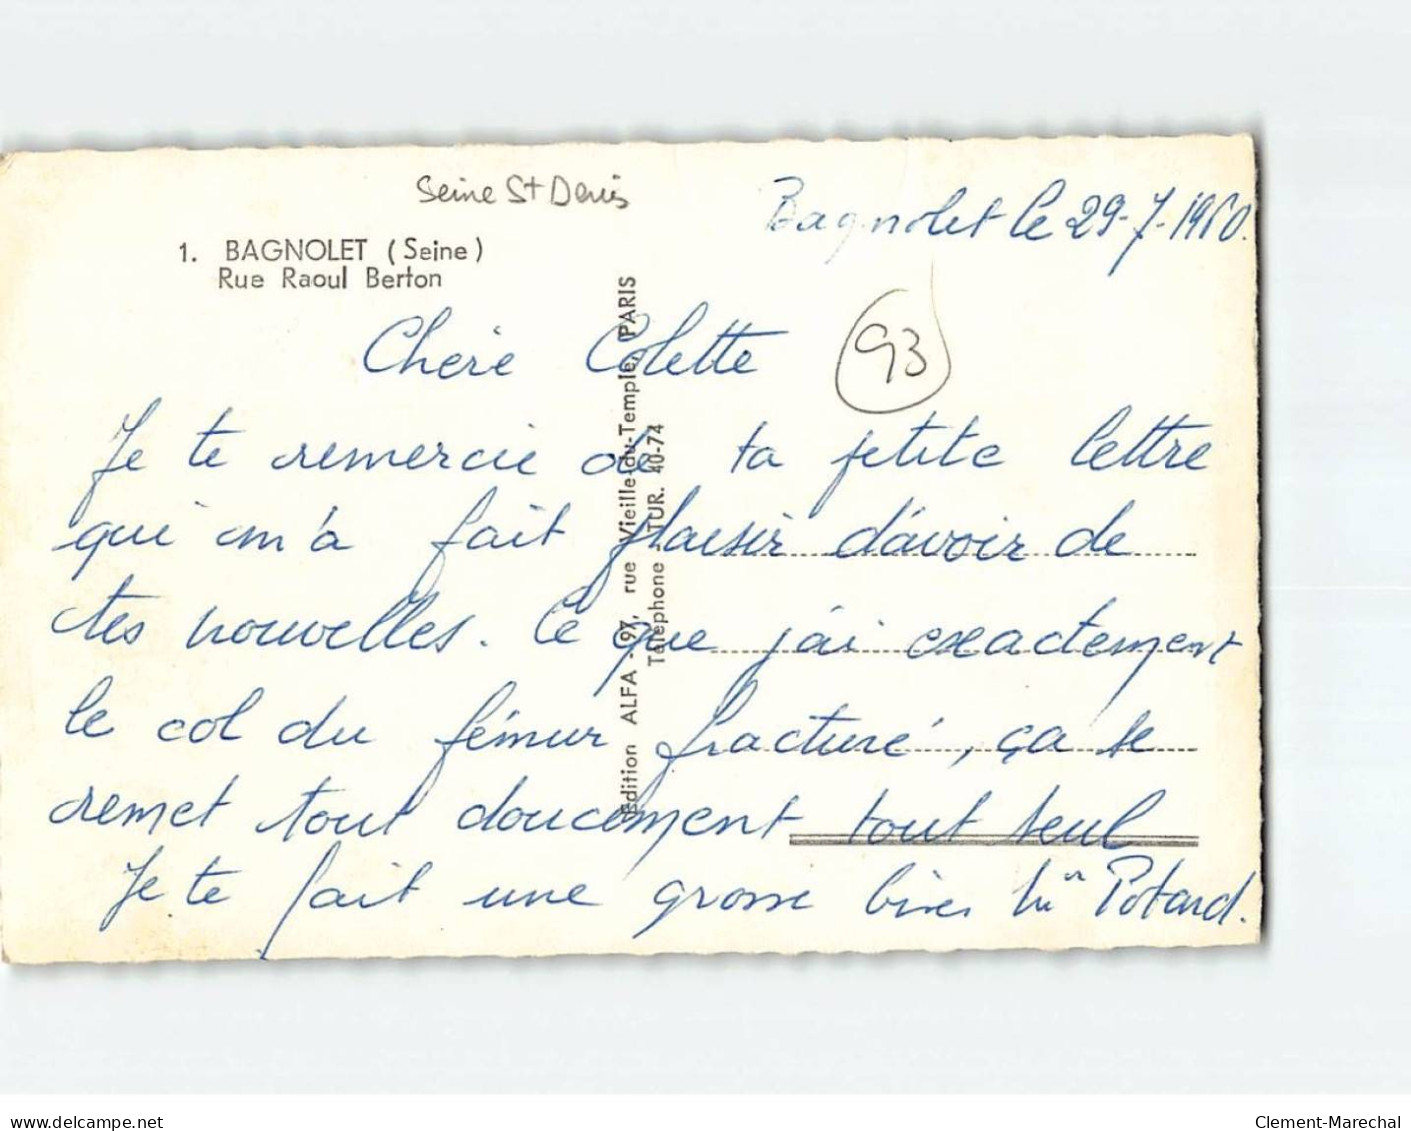 Seine St Denis
Bagnolet le 29-7-1960.
1. BAGNOLET (Seine)
Rue Raoul Berton
93
Chere Colette
Je te remercie de ta petite lettre
qui m'a fait plaisir d'avoir de
tes nouvelles. Ce que j'ai exactement
le col du fémur fracturé, ça se
remet tout doucement tout seul
Je te fait une grosse bises Potard.
Edition ALFA - 97, rue Vieille-du-Temple, PARIS
Téléphone : TUR. 40-74
www.delcampe.net
Clement-Marechal